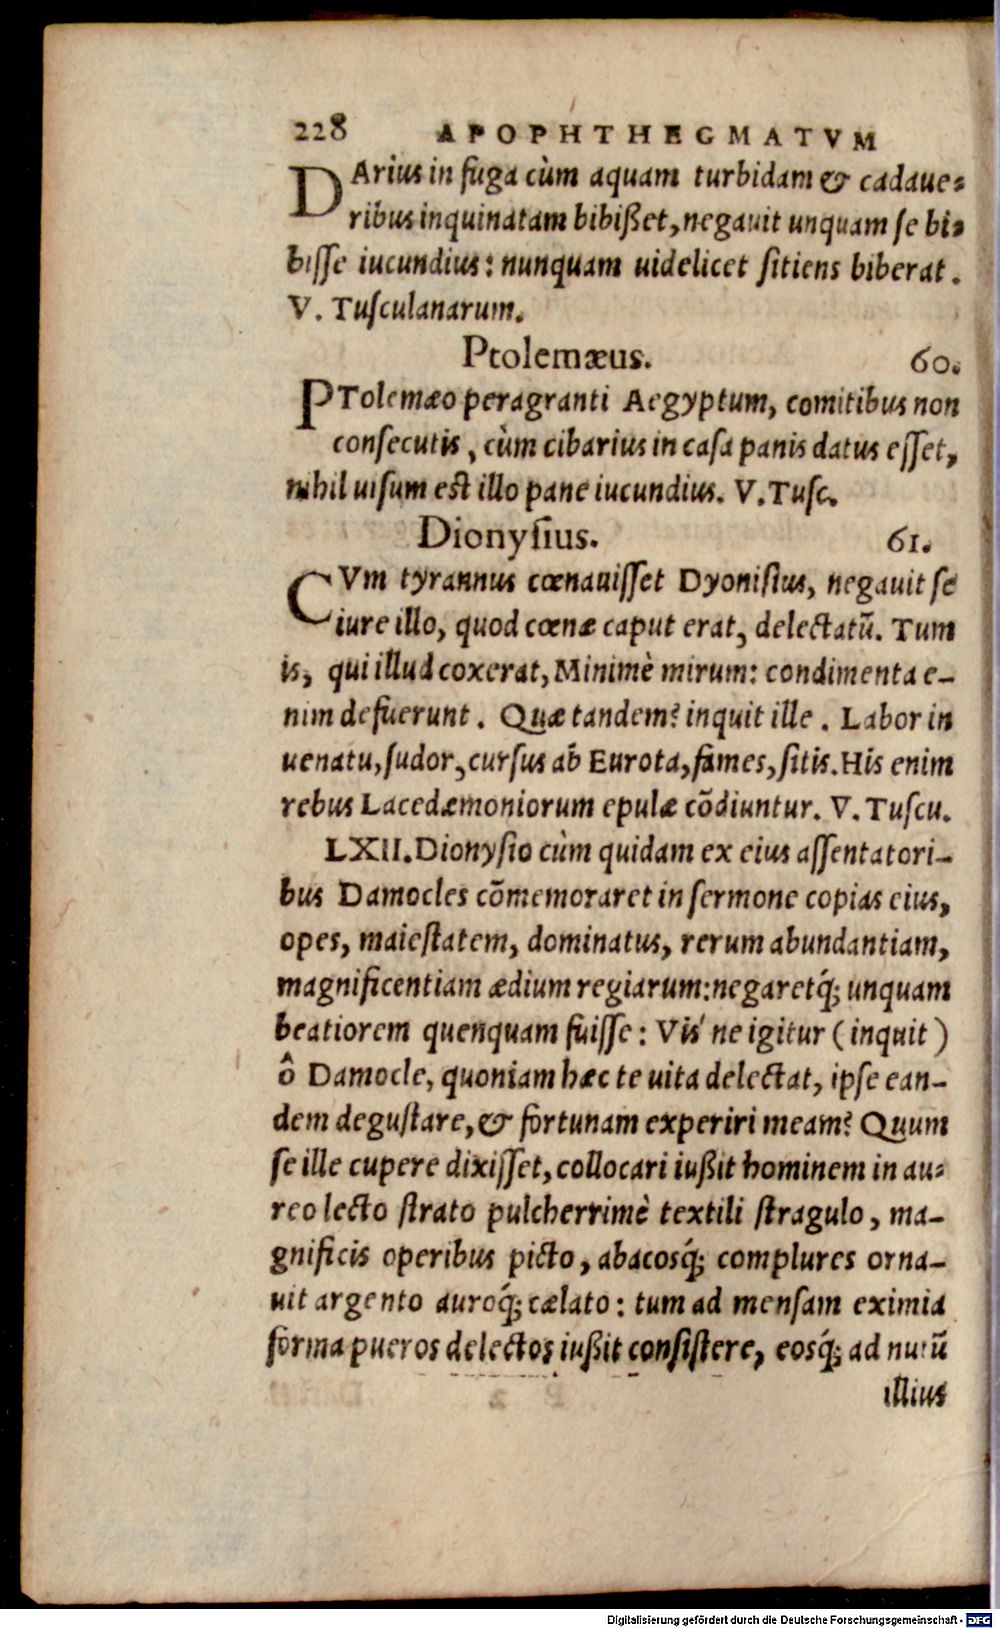 228 APOPHTHEGMATVM
DArius in fuga cùm aquam turbidam & cadaue-
ribus inquinatam bibißet, negauit unquam se bi-
bisse iucundius: nunquam uidelicet sitiens biberat.
V. Tusculanarum.
Ptolemæus. 60.
PTolemæo peragranti Aegyptum, comitibus non
consecutis, cùm cibarius in casa panis datus esset,
nihil uisum est illo pane iucundius. V. Tusc.
Dionysius. 61.
CVm tyrannus cœnauisset Dyonisius, negauit se
iure illo, quod cœnæ caput erat, delectatū. Tum
is, qui illud coxerat, Minimè mirum: condimenta e-
nim defuerunt. Quæ tandem? inquit ille. Labor in
uenatu, sudor, cursus ab Eurota, fames, sitis. His enim
rebus Lacedæmoniorum epulæ cōdiuntur. V. Tuscu.
LXII. Dionysio cùm quidam ex eius assentatori-
bus Damocles cōmemoraret in sermone copias eius,
opes, maiestatem, dominatus, rerum abundantiam,
magnificentiam ædium regiarum: negaretq́; unquam
beatiorem quenquam fuisse: Vis' ne igitur (inquit)
ô Damocle, quoniam hæc te uita delectat, ipse ean-
dem degustare, & fortunam experiri meam? Quum
se ille cupere dixisset, collocari iußit hominem in au-
reo lecto strato pulcherrimè textili stragulo, ma-
gnificis operibus picto, abacosq́; complures orna-
uit argento auroq́; cælato: tum ad mensam eximia
forma pueros delectos iußit consistere, eosq́; ad nutū
illius
Digitalisierung gefördert durch die Deutsche Forschungsgemeinschaft - DFG